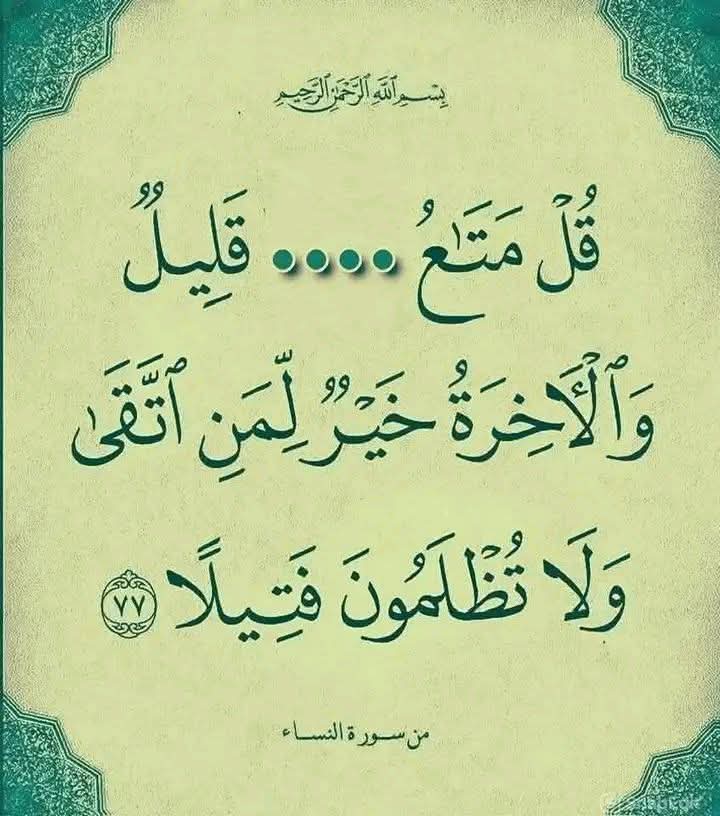 بِسْمِ ٱللَّهِ ٱلرَّحْمَٰنِ ٱلرَّحِيمِ
قُلْ مَتَٰعُ •••• قَلِيلٌ
وَٱلْأَخِرَةُ خَيْرٌ لِّمَنِ ٱتَّقَىٰ
وَلَا تُظْلَمُونَ فَتِيلًا ٧٧
من سورة النساء